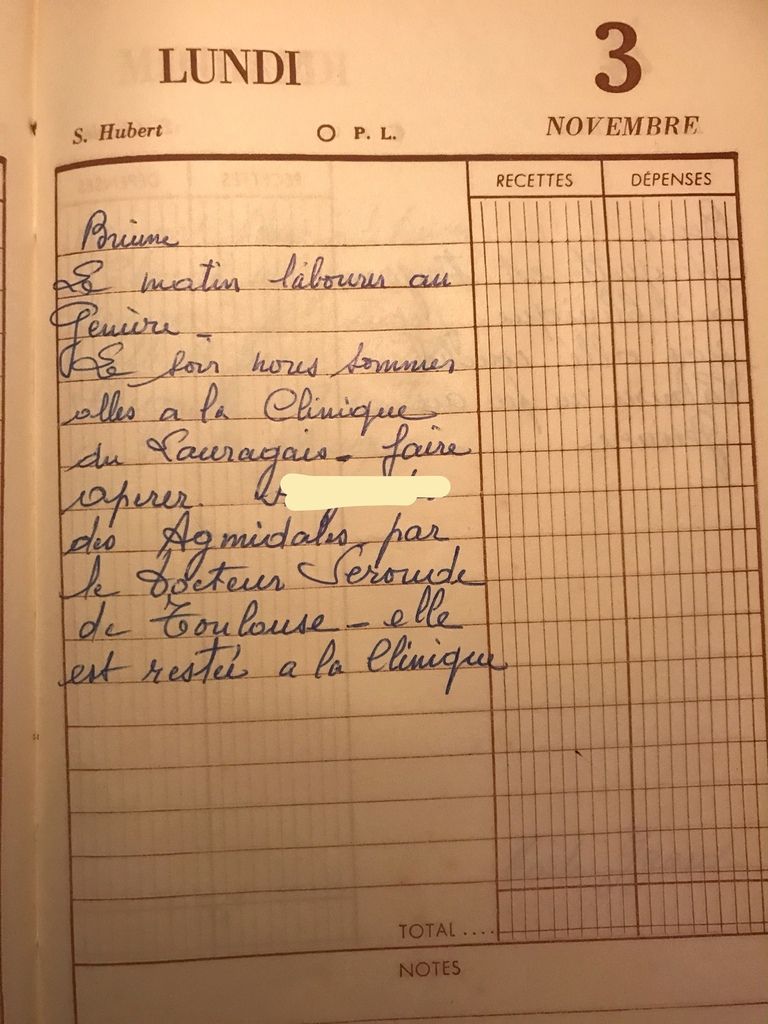 LUNDI
3
S. Hubert
O P. L.
NOVEMBRE
RECETTES
DÉPENSES
Brume
Le matin labourer au
Genièvre -
Le soir nous sommes
alles a la Clinique
du Lauragais - faire
operer
des Agmidales par
le Docteur Seroude
de Toulouse - elle
est resteé a la Clinique
TOTAL ....
NOTES